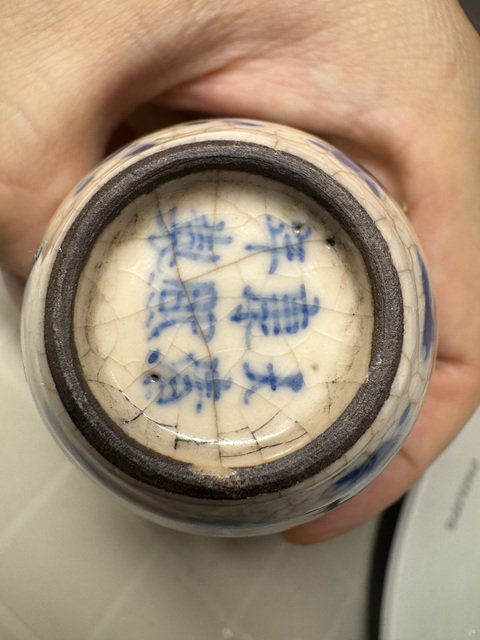 大清
康熙
年製
PHILIPS